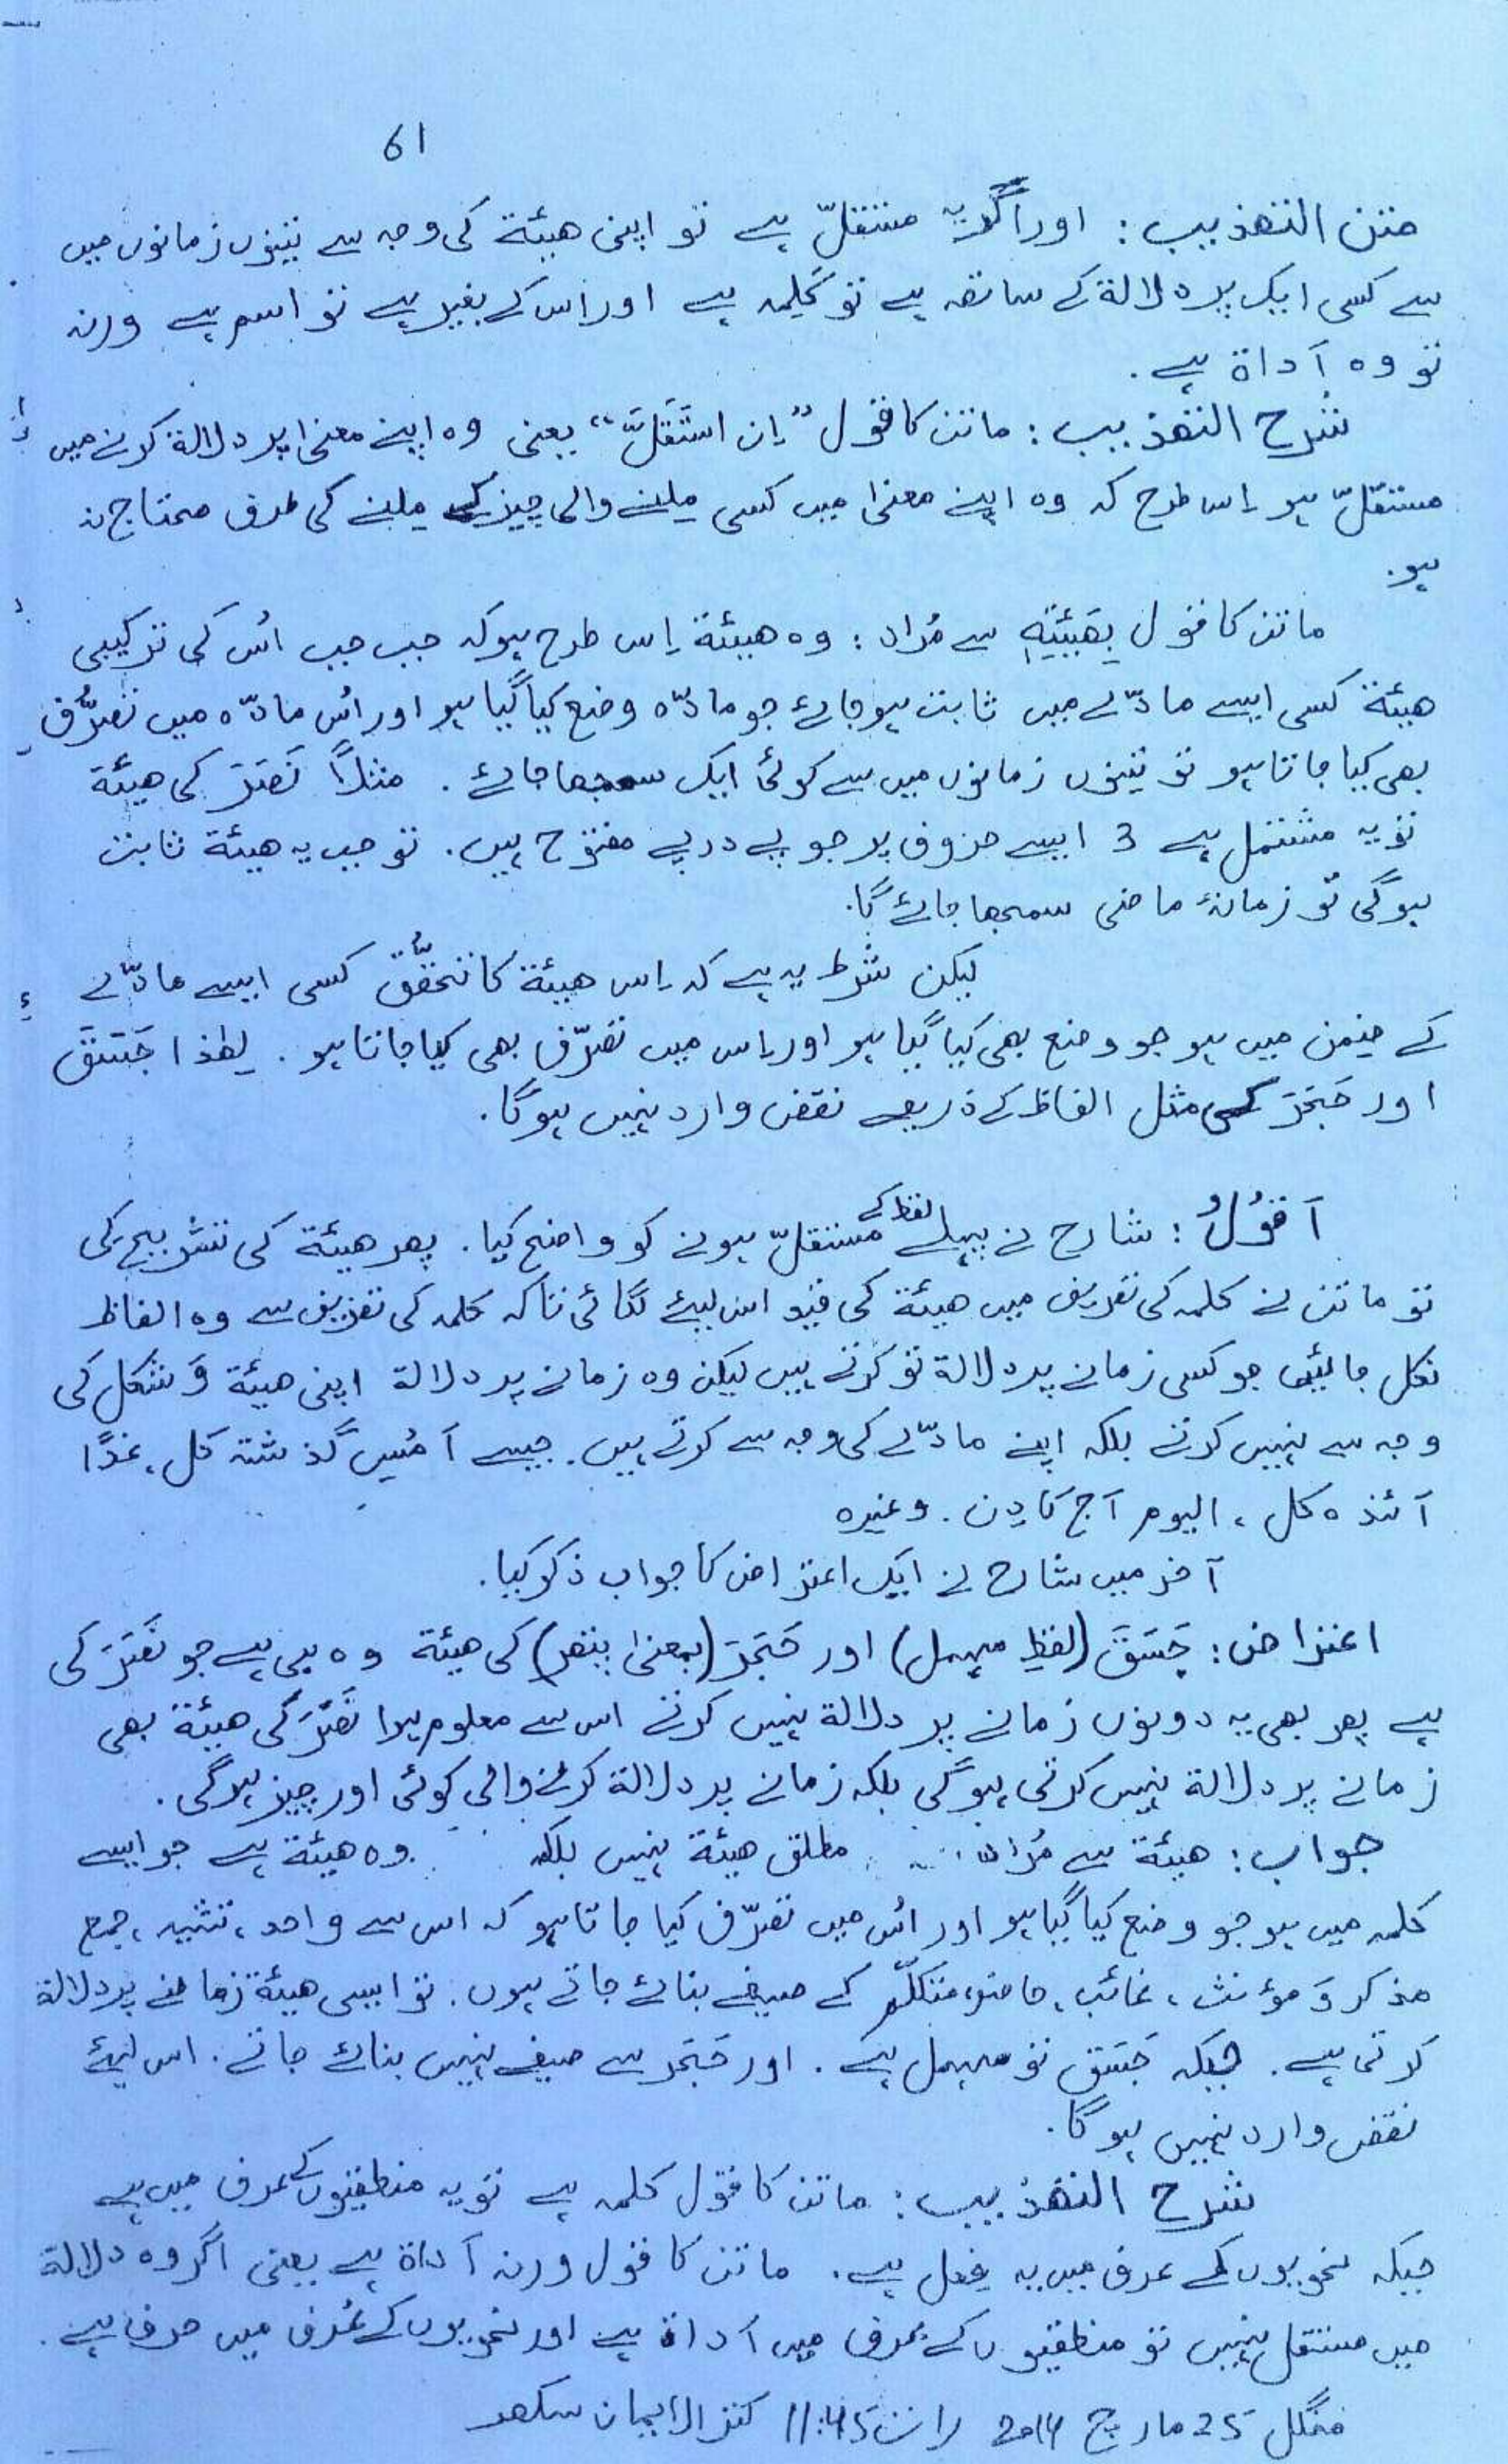 61
متن التھذیب : اور اگر یہ مستقلّ ہے تو اپنی ھیئۃ کی وجہ سے تینوں زمانوں میں
سے کسی ایک پر دلالۃ کے ساتھ ہے تو کَلِمہ ہے اور اس کے بغیر ہے تو اسم ہے ورنہ
تو وہ اَداۃ ہے .
شرح التھذیب : ماتن کا قول ”اِن استَقَلَّ“ یعنی وہ اپنے معنٰی پر دلالۃ کرنے میں
مستقلّ ہو اِس طرح کہ وہ اپنے معنٰی میں کسی ملنے والی چیز کے ملنے کی طرف محتاج نہ
ہو .
ماتن کا قول بِھَیْئَتِہٖ سے مُراد : وہ ھیئۃ اِس طرح ہو کہ جب جب اُس کی ترکیبی
ھیئۃ کسی ایسے مادّے میں ثابت ہو جائے جو مادّہ وضع کیا گیا ہو اور اُس مادّہ میں تصرُّف
بھی کیا جاتا ہو تو تینوں زمانوں میں سے کوئی ایک سمجھا جائے . مثلاً نَصَرَ کی ھیئۃ
تو یہ مشتمل ہے 3 ایسے حروف پر جو پے در پے مفتوح ہیں . تو جب یہ ھیئۃ ثابت
ہوگی تو زمانۂ ماضی سمجھا جائے گا .
لیکن شرط یہ ہے کہ اِس ھیئۃ کا تحقُّق کسی ایسے مادّے
کے ضِمن میں ہو جو وضع بھی کیا گیا ہو اور اِس میں تصرّف بھی کیا جاتا ہو . لھٰذا جَسَقَ
اور حَجَرَ کی مثل الفاظ کے ذریعے نقض وارد نہیں ہوگا .
اَقُوْلُ : شارح نے پہلے لفظ کے مستقلّ ہونے کو واضح کیا . پھر ھیئۃ کی تشریح کی
تو ماتن نے کلمہ کی تعریف میں ھیئۃ کی قید اس لیئے لگائی تاکہ کلمہ کی تعریف سے وہ الفاظ
نکل جائیں جو کسی زمانے پر دلالۃ تو کرتے ہیں لیکن وہ زمانے پر دلالۃ اپنی ھیئۃ وَ شکل کی
وجہ سے نہیں کرتے بلکہ اپنے مادّے کی وجہ سے کرتے ہیں . جیسے اَمْسِ گذشتہ کل ، غدًا
آئندہ کل ، الیوم آج کا دِن . وغیرہ
آخر میں شارح نے ایک اعتراض کا جواب ذکر کیا .
اعتراض : جَسَقَ (لفظِ مہمل) اور حَجَرَ (بمعنٰی پتھر) کی ھیئۃ وہ ہی ہے جو نَصَرَ کی
ہے پھر بھی یہ دونوں زمانے پر دلالۃ نہیں کرتے اس سے معلوم ہوا نَصَرَ کی ھیئۃ بھی
زمانے پر دلالۃ نہیں کرتی ہوگی بلکہ زمانے پر دلالۃ کرنے والی کوئی اور چیز ہوگی .
جواب : ھیئۃ سے مُراد مطلق ھیئۃ نہیں بلکہ وہ ھیئۃ ہے جو ایسے
کلمہ میں ہو جو وضع کیا گیا ہو اور اُس میں تصرّف کیا جاتا ہو کہ اس سے واحد ، تثنیہ ، جمع
مذکر وَ مؤنث ، غائب ، حاضر ، متکلّم کے صیغے بنائے جاتے ہوں . تو ایسی ھیئۃ زمانے پر دلالۃ
کرتی ہے . جبکہ جَسَق تو مہمل ہے . اور حَجَر سے صیغے نہیں بنائے جاتے . اس لیئے
نقض وارد نہیں ہوگا .
شرح التھذیب : ماتن کا قول کلمہ ہے تو یہ منطقیوں کے عرف میں ہے
جبکہ نحویوں کے عرف میں یہ فِعل ہے . ماتن کا قول ورنہ اَداۃ ہے یعنی اگر وہ دلالۃ
میں مستقل نہیں تو منطقیوں کے عرف میں اَداۃ ہے اور نحویوں کے عُرف میں حرف ہے .
منگل 25 مارچ 2014 رات 11:45 کنز الایمان سکھر